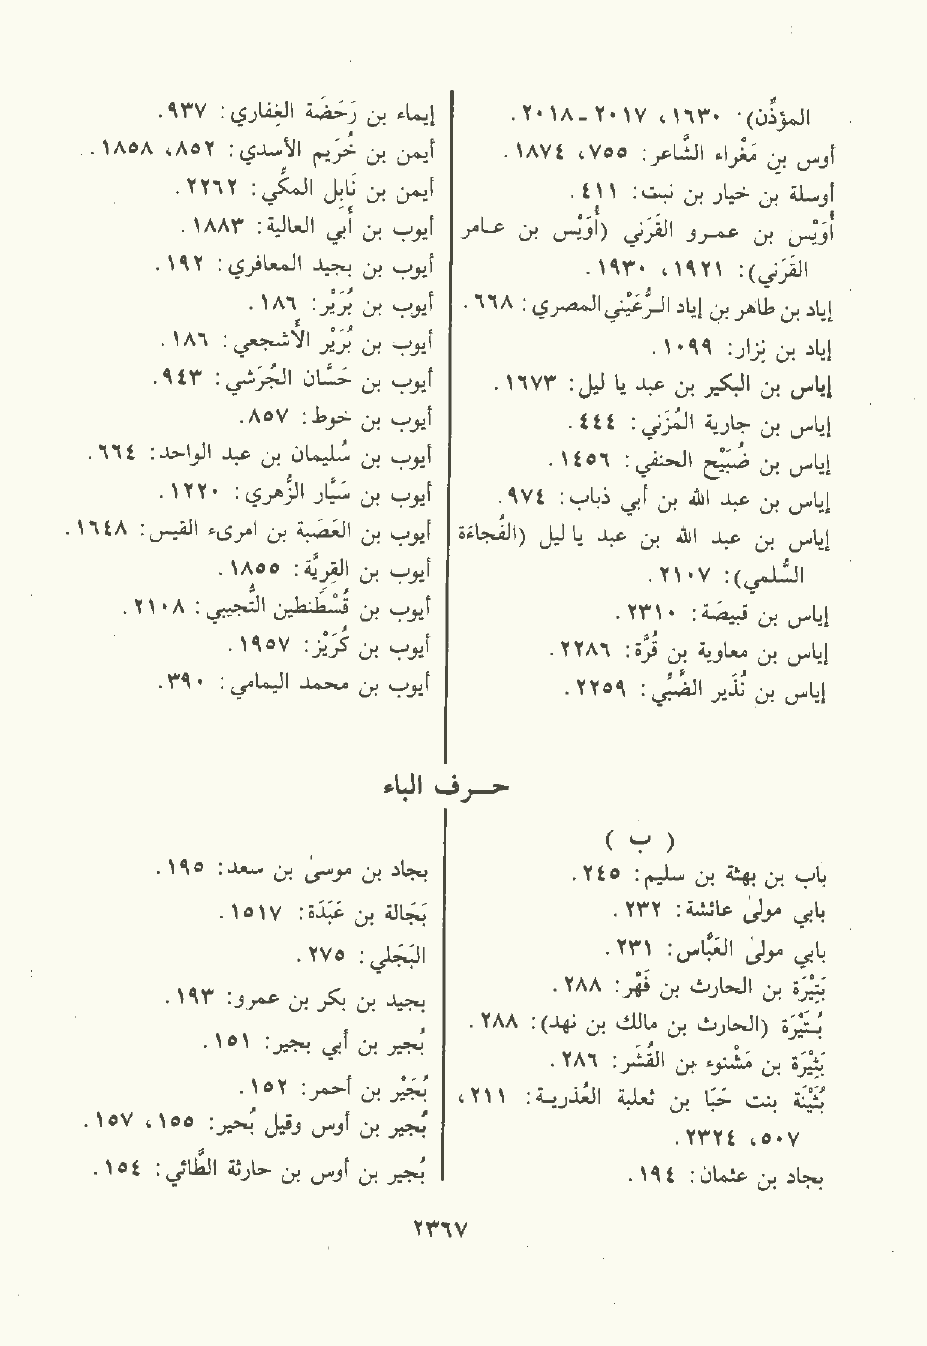 المؤذِّن): ١٦٣٠، ٢٠١٧ـ٢٠١٨.
أوس بن مَغْراء الشَّاعر: ٧٥٥، ١٨٧٤.
أوسلة بن خيار بن نبت: ٤١١.
أُوَيْس بن عمـرو القَرَني (أُوَيْس بن عـامر
القَرَني): ١٩٢١، ١٩٣٠.
إياد بن طاهر بن إياد الـرُّعَيْني المصري: ٦٦٨.
إياد بن نِزار: ١٠٩٩.
إياس بن البكير بن عبد يا ليل: ١٦٧٣.
إياس بن جارية المُزَني: ٤٤٤.
إياس بن ضُبَيْح الحنفي: ١٤٥٦.
إياس بن عبد الله بن أبي ذباب: ٩٧٤.
إياس بن عبد الله بن عبد يا ليل (الفُجاءَة
السُّلمي): ٢١٠٧.
إياس بن قبيصَة: ٢٣١٠.
إياس بن معاوية بن قُرَّة: ٢٢٨٦.
إياس بن نُذَير الضَّبِّي: ٢٢٥٩.
إيماء بن رَحَضَة الغِفاري: ٩٣٧.
أيمن بن خُرَيم الأسدي: ٨٥٢، ١٨٥٨.
أيمن بن نَابِل المكِّي: ٢٢٦٢.
أيوب بن أَبي العالية: ١٨٨٣.
أيوب بن بجيد المعافري: ١٩٢.
أيوب بن بُرَيْر: ١٨٦.
أيوب بن بُرَيْر الأَشجعي: ١٨٦.
أيوب بن حَسَّان الجُرَشي: ٩٤٣.
أيوب بن خوط: ٨٥٧.
أيوب بن سُليمان بن عبد الواحد: ٦٦٤.
أيوب بن سَيَّار الزُّهري: ١٢٢٠.
أيوب بن العَصَبة بن امرىء القيس: ١٦٤٨.
أيوب بن القِريَّة: ١٨٥٥.
أيوب بن قُسْطَنطين التُّجيبي: ٢١٠٨.
أيوب بن كُرَيْز: ١٩٥٧.
أيوب بن محمد اليمامي: ٣٩٠.
حـــرف الباء
( ب )
باب بن بهثة بن سليم: ٢٤٥.
بابي مولىٰ عائشة: ٢٣٢.
بابي مولىٰ العَبَّاس: ٢٣١.
بَتِيْرَة بن الحارث بن فَهْر: ٢٨٨.
بُـتَيْرَة (الحارث بن مالك بن نهد): ٢٨٨.
بَثِيْرَة بن مَشْنوء بن القُشَر: ٢٨٦.
بُثَيْنَة بنت حَبَا بن ثعلبة العُذريـة: ٢١١،
٥٠٧، ٢٣٢٤.
بجاد بن عثمان: ١٩٤.
بجاد بن موسىٰ بن سعد: ١٩٥.
بَجَالة بن عَبَدَة: ١٥١٧.
البَجَلي: ٢٧٥.
بجيد بن بكر بن عمرو: ١٩٣.
بُجير بن أبي بجير: ١٥١.
بُجَيْر بن أحمر: ١٥٢.
بُجير بن أوس وقيل بُحير: ١٥٥، ١٥٧.
بُجير بن أوس بن حارثة الطَّائي: ١٥٤.
٢٣٦٧